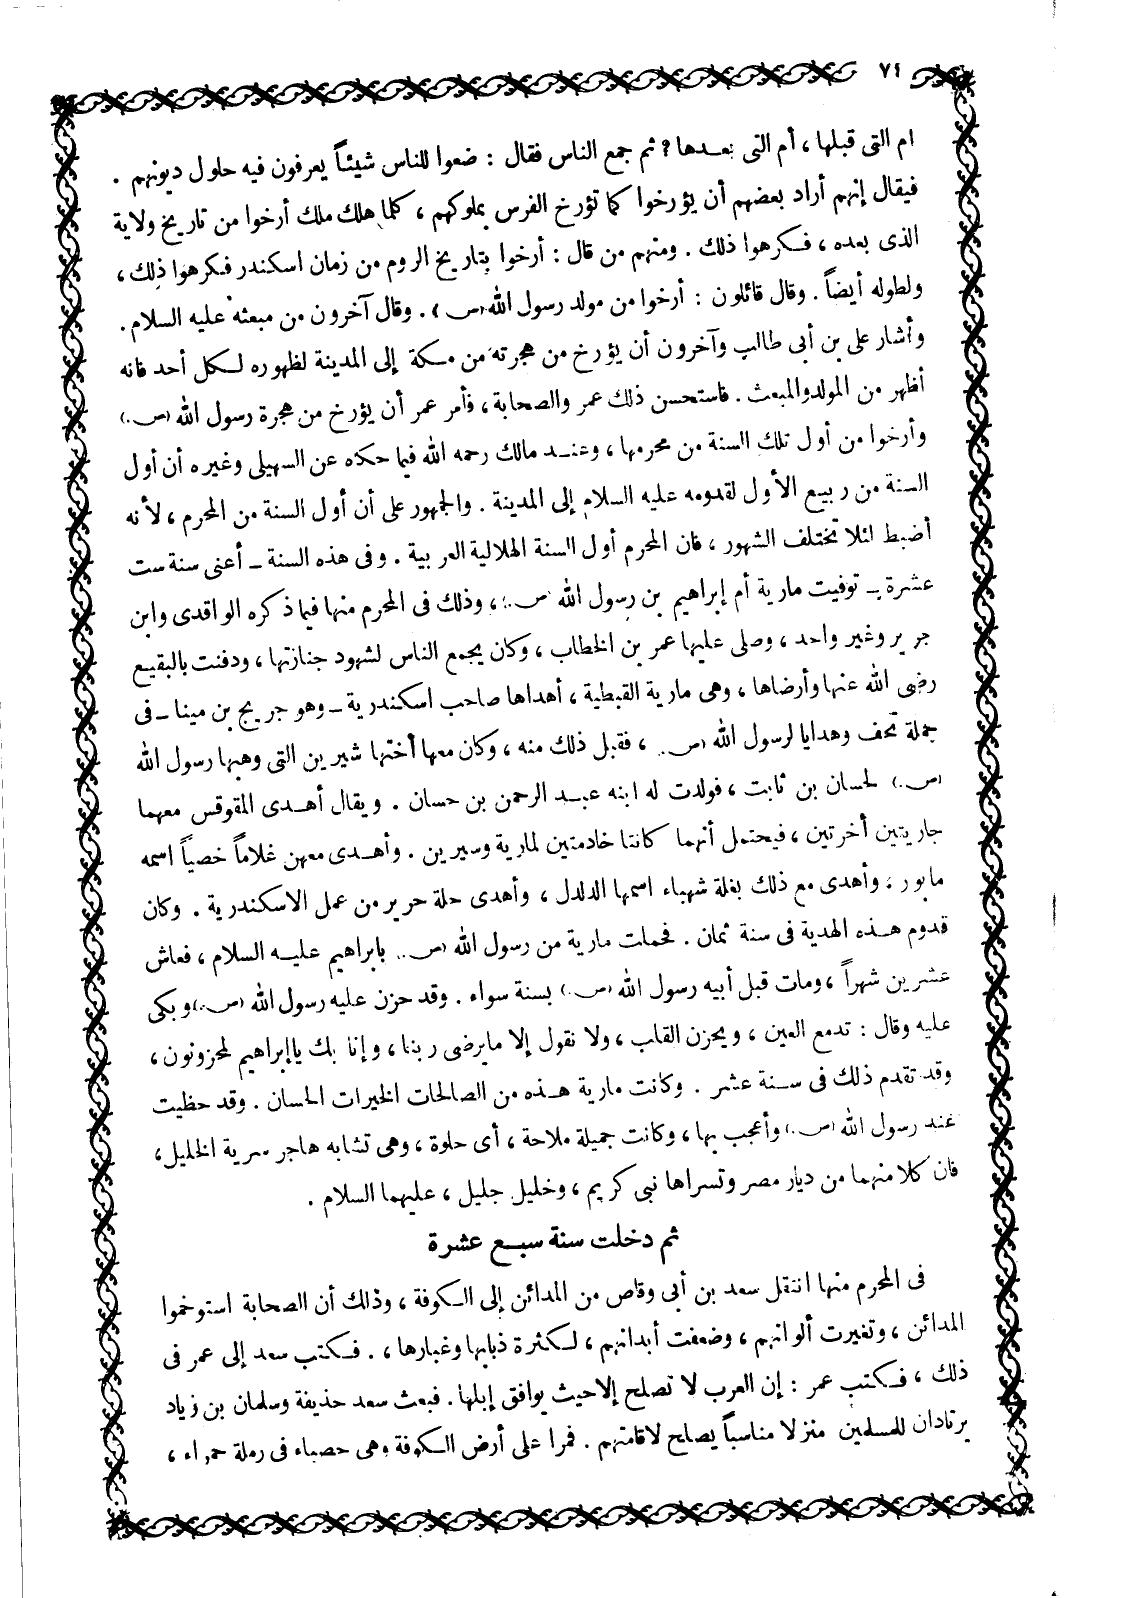 ٧٤
ام التى قبلها ، أم التى بعـدها ? ثم جمع الناس فقال : ضعوا للناس شيئاً يعرفون فيه حلول ديونهم .
فيقال إنهم أراد بعضهم أن يؤرخوا كما تؤرخ الفرس بملوكهم ، كلما هلك ملك أرخوا من تاريخ ولاية
الذى بعده ، فـكرهوا ذلك . ومنهم من قال : أرخوا بتاريخ الروم من زمان اسكندر فـكرهوا ذلك ،
ولطوله أيضاً . وقال قائلون : أرخوا من مولد رسول الله (ص) . وقال آخرون من مبعثه عليه السلام .
وأشار على بن أبى طالب وآخرون أن يؤرخ من هجرته من مـكة إلى المدينة لظهوره لـكل أحد فانه
أظهر من المولد والمبعث . فاستحسن ذلك عمر والصحابة ، فأمر عمر أن يؤرخ من هجرة رسول الله (ص.)
وأرخوا من أول تلك السنة من محرمها ، وعنـد مالك رحمه الله فيما حكاه عن السهيلى وغيره أن أول
السنة من ربيع الأول لقدومه عليه السلام إلى المدينة . والجمهور على أن أول السنة من المحرم ، لأنه
أضبط لئلا تختلف الشهور ، فان المحرم أول السنة الهلالية العربية . وفى هذه السنة ــ أعنى سنة ست
عشرة ــ توفيت مارية أم إبراهيم بن رسول الله (ص.) ، وذلك فى المحرم منها فيما ذكره الواقدى وابن
جرير وغير واحد ، وصلى عليها عمر بن الخطاب ، وكان يجمع الناس لشهود جنازتها ، ودفنت بالبقيع
رضى الله عنها وأرضاها ، وهى مارية القبطية ، أهداها صاحب اسكندرية ــ وهو جريج بن مينا ــ فى
جملة تحف وهدايا لرسول الله (ص.) ، فقبل ذلك منه ، وكان معها أختها شيرين التى وهبها رسول الله
(ص.) لحسان بن ثابت ، فولدت له ابنه عبـد الرحمن بن حسان . ويقال أهـدى المقوقس معهما
جاريتين أخرتين ، فيحتمل أنهما كانتا خادمتين لمارية وسيرين . وأهـدى معهن غلاماً خصياً اسمه
مابور ، وأهدى مع ذلك بغلة شهباء اسمها الدلدل ، وأهدى حلة حرير من عمل الاسكندرية . وكان
قدوم هـذه الهدية فى سنة ثمان . فحملت مارية من رسول الله (ص.) بابراهيم عليـه السلام ، فعاش
عشرين شهراً ، ومات قبل أبيه رسول الله (ص.) بسنة سواء . وقد حزن عليه رسول الله (ص.) وبكى
عليه وقال : تدمع العين ، ويحزن القلب ، ولا نقول إلا ما يرضى ربنا ، وإنا بك يا إبراهيم لمحزونون ،
وقد تقدم ذلك فى سـنة عشر . وكانت مارية هـذه من الصالحات الخيرات الحسان . وقد حظيت
عند رسول الله (ص.) وأعجب بها ، وكانت جميلة ملاحة ، أى حلوة ، وهى تشابه هاجر سرية الخليل ،
فان كلا منهما من ديار مصر وتسراها نبى كريم ، وخليل جليل ، عليهما السلام .
ثم دخلت سنة سبـع عشرة
فى المحرم منها انتقل سعد بن أبى وقاص من المدائن إلى الـكوفة ، وذلك أن الصحابة استوخموا
المدائن ، وتغيرت ألوانهم ، وضعفت أبدانهم ، لـكثرة ذبابها وغبارها ، . فـكتب سعد إلى عمر فى
ذلك ، فـكتب عمر : إن العرب لا تصلح إلا حيث يوافق إبلها . فبعث سعد حذيفة وسلمان بن زياد
يرتادان للمسلمين منزلا مناسباً يصلح لاقامتهم . فمرا على أرض الـكوفة وهى حصباء فى رملة حمراء ،